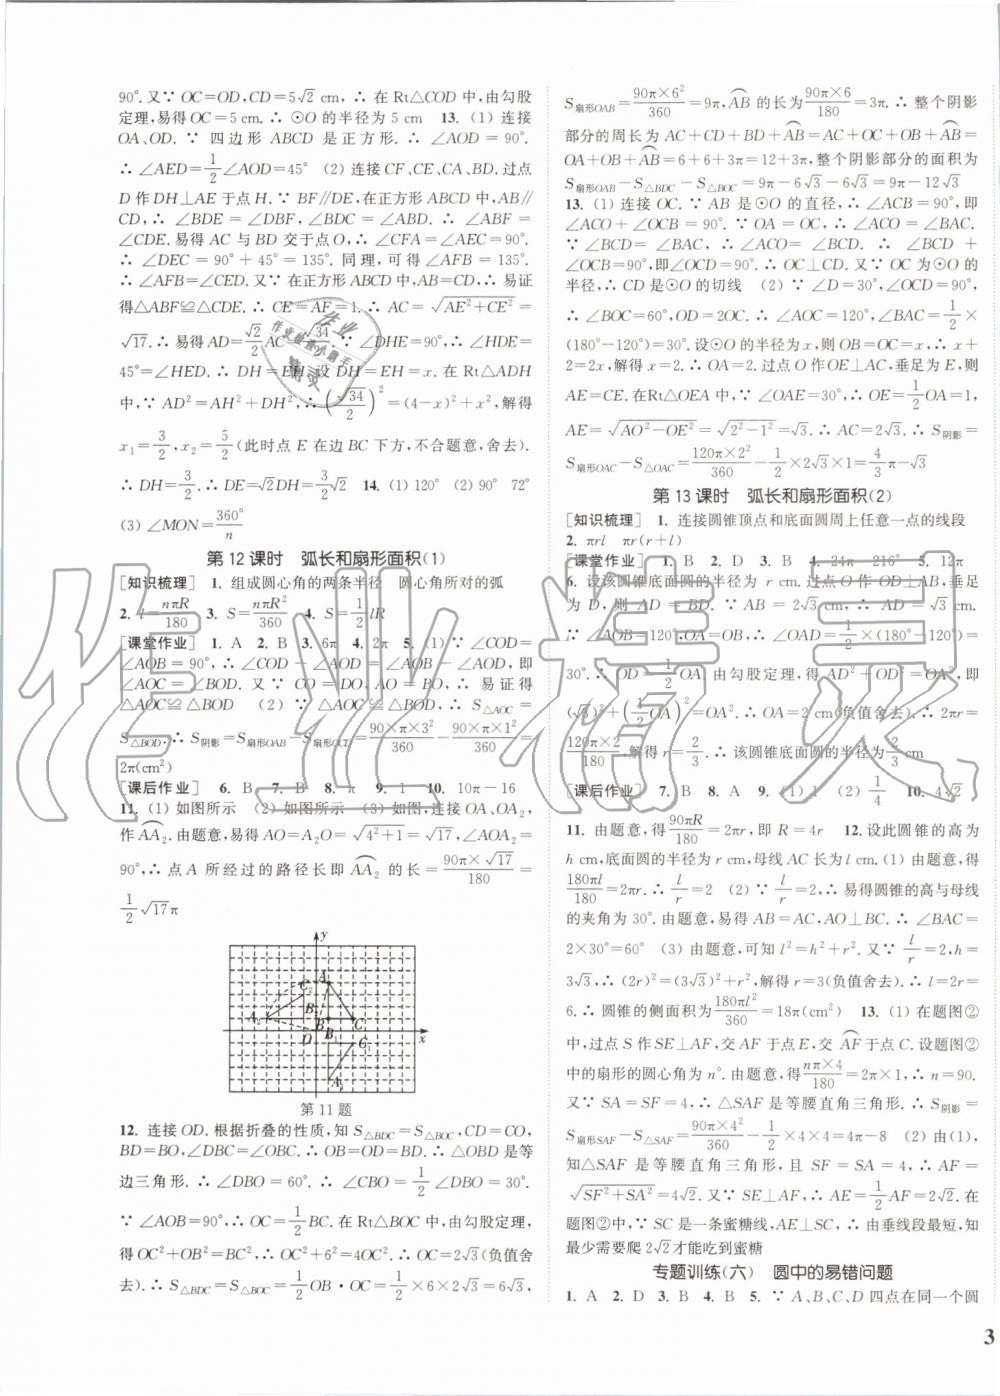 90°.又∵ OC=OD,CD=5√2 cm,∴ 在 Rt△COD 中,由勾股
定理,易得 OC=5 cm.∴ ⊙O 的半径为 5 cm 13. (1) 连接
OA、OD. ∵ 四边形 ABCD 是正方形. ∴ ∠AOD = 90°.
∴ ∠AED=1/2∠AOD=45° (2) 连接 CF、CE、CA、BD. 过点
D 作 DH⊥AE 于点 H. ∵ BF∥DE,在正方形 ABCD 中,AB∥
CD, ∴ ∠BDE = ∠DBF, ∠BDC = ∠ABD. ∴ ∠ABF =
∠CDE. 易得 AC 与 BD 交于点 O,∴ ∠CFA=∠AEC=90°.
∴ ∠DEC = 90° + 45° = 135°. 同理,可得 ∠AFB = 135°.
∴ ∠AFB=∠CED. 又∵ 在正方形 ABCD 中,AB=CD,∴ 易证
得△ABF≌△CDE. ∴ CE=AF=1. ∴ AC = √(AE²+CE²) =
√17. ∴ 易得 AD=√2/2 AC=√34/2. ∵ ∠DHE=90°,∴ ∠HDE=
45°=∠HED. ∴ DH=EH. 设 DH=EH=x. 在 Rt△ADH
中,∵ AD²=AH²+DH²,∴ (√34/2)²=(4-x)²+x²,解得
x₁=3/2,x₂=5/2(此时点 E 在边 BC 下方,不合题意,舍去).
∴ DH=3/2. ∴ DE=√2DH=3/2√2 14. (1) 120° (2) 90° 72°
(3) ∠MON=360°/n
第 12 课时 弧长和扇形面积(1)
[知识梳理] 1. 组成圆心角的两条半径 圆心角所对的弧
2. l=nπR/180 3. S=nπR²/360 4. S=1/2 lR
[课堂作业] 1. A 2. B 3. 6π 4. 2π 5. (1) ∵ ∠COD=
∠AOB = 90°,∴ ∠COD - ∠AOD = ∠AOB - ∠AOD,即
∠AOC = ∠BOD. 又∵ OC = DO, AO = BO, ∴ 易证得
△AOC≌△BOD (2) ∵ △AOC≌△BOD,∴ S△AOC=
S△BOD. ∴ S阴影=S扇形OAB-S扇形OCD=90×π×3²/360-90×π×1²/360=
2π(cm²)
[课后作业] 6. B 7. B 8. π 9. 1 10. 10π-16
11. (1) 如图所示 (2) 如图所示 (3) 如图,连接 OA、OA₂,
作AA₂. 由题意,易得 AO=A₂O=√(4²+1)=√17,∠AOA₂=
90°.∴ 点 A 所经过的路径长即AA₂的长=90π×√17/180=
1/2√17π
y
A
C₂
B₂
A₂
B
B₁
C
O
x
C₁
A₁
第 11 题
12. 连接 OD. 根据折叠的性质,知 S△BDC=S△BOC,CD=CO,
BD=BO,∠DBC=∠OBC.∴ OB=OD=BD.∴ △OBD 是等
边三角形.∴ ∠DBO=60°.∴ ∠CBO=1/2∠DBO=30°.
∵ ∠AOB=90°,∴ OC=1/2BC. 在 Rt△BOC 中,由勾股定理,
得 OC²+OB²=BC²,∴ OC²+6²=4OC².∴ OC=2√3(负值舍
去).∴ S△BDC=S△BOC=1/2OB·OC=1/2×6×2√3=6√3,
S扇形OAB=90π×6²/360=9π,AB的长为90π×6/180=3π.∴ 整个阴影
部分的周长为 AC+CD+BD+AB=AC+OC+OB+AB=
OA+OB+AB=6+6+3π=12+3π,整个阴影部分的面积为
S扇形OAB-S△BDC-S△BOC=9π-6√3-6√3=9π-12√3
13. (1) 连接 OC. ∵ AB 是⊙O 的直径,∴ ∠ACB=90°,即
∠ACO+∠OCB=90°. ∵ OA=OC,∴ ∠ACO=∠BAC.
∵ ∠BCD = ∠BAC, ∴ ∠ACO = ∠BCD. ∴ ∠BCD +
∠OCB=90°,即∠OCD=90°.∴ OC⊥CD. 又∵ OC 为⊙O 的
半径,∴ CD 是⊙O 的切线 (2) ∵ ∠D=30°,∠OCD=90°,
∴ ∠BOC=60°,OD=2OC.∴ ∠AOC=120°,∠BAC=1/2×
(180°-120°)=30°. 设⊙O 的半径为 x,则 OB=OC=x.∴ x+
2=2x,解得 x=2.∴ OA=2. 过点 O 作 OE⊥AC,垂足为 E,则
AE=CE. 在Rt△OEA 中,∵ ∠OAE=30°,∴ OE=1/2OA=1,
AE=√(AO²-OE²)=√(2²-1²)=√3.∴ AC=2√3.∴ S阴影=
S扇形OAC-S△OAC=120π×2²/360-1/2×2√3×1=4/3π-√3
第 13 课时 弧长和扇形面积(2)
[知识梳理] 1. 连接圆锥顶点和底面圆周上任意一点的线段
2. πrl πr(r+l)
[课堂作业] 1. B 2. D 3. B 4. 24π 216° 5. 12π
6. 设该圆锥底面圆的半径为 r cm. 过点 O 作 OD⊥AB,垂足
为 D,则 AD = BD. ∵ AB = 2√3 cm,∴ AD = √3 cm.
∵ ∠AOB=120°,OA=OB,∴ ∠OAD=1/2×(180°-120°)=
30°.∴ OD=1/2OA. 由勾股定理,得 AD²+OD²=OA²,即
(√3)²+(1/2OA)²=OA².∴ OA=2 cm(负值舍去).∴ 2πr=
120π×2/180,解得 r=2/3.∴ 该圆锥底面圆的半径为2/3 cm
[课后作业] 7. B 8. A 9. (1) 1 (2) 1/4 10. 4√2
11. 由题意,得90πR/180=2πr,即 R=4r 12. 设此圆锥的高为
h cm,底面圆的半径为 r cm,母线 AC 长为 l cm. (1) 由题意,得
180πl/180=2πr.∴ l/r=2 (2) ∵ l/r=2,∴ 易得圆锥的高与母线
的夹角为 30°. 由题意,易得 AB=AC,AO⊥BC.∴ ∠BAC=
2×30°=60° (3) 由题意,可知 l²=h²+r². 又∵ l/r=2,h=
3√3,∴ (2r)²=(3√3)²+r²,解得 r=3(负值舍去).∴ l=2r=
6.∴ 圆锥的侧面积为180πl²/360=18π(cm²) 13. (1) 在题图②
中,过点 S 作 SE⊥AF,交 AF 于点 E,交 AF于点 C. 设题图②
中的扇形的圆心角为 n°. 由题意,得nπ×4/180=2π×1.∴ n=90.
又∵ SA=SF=4,∴ △SAF 是等腰直角三角形.∴ S阴影=
S扇形SAF-S△SAF=90π×4²/360-1/2×4×4=4π-8 (2) 由(1),
知△SAF 是等腰直角三角形,且 SF=SA=4,∴ AF=
√(SF²+SA²)=4√2. 又∵ SE⊥AF,∴ AE=1/2AF=2√2. 在
题图②中,∵ SC 是一条蜜糖线,AE⊥SC,∴ 由垂线段最短,知
最少需要爬 2√2才能吃到蜜糖
专题训练(六) 圆中的易错问题
1. A 2. D 3. B 4. B 5. ∵ A、B、C、D 四点在同一个圆
3
作业精灵